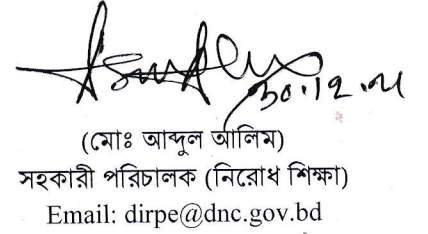 ৩০.১২.২১
(মোঃ আব্দুল আলিম)
সহকারী পরিচালক (নিরোধ শিক্ষা)
Email: dirpe@dnc.gov.bd